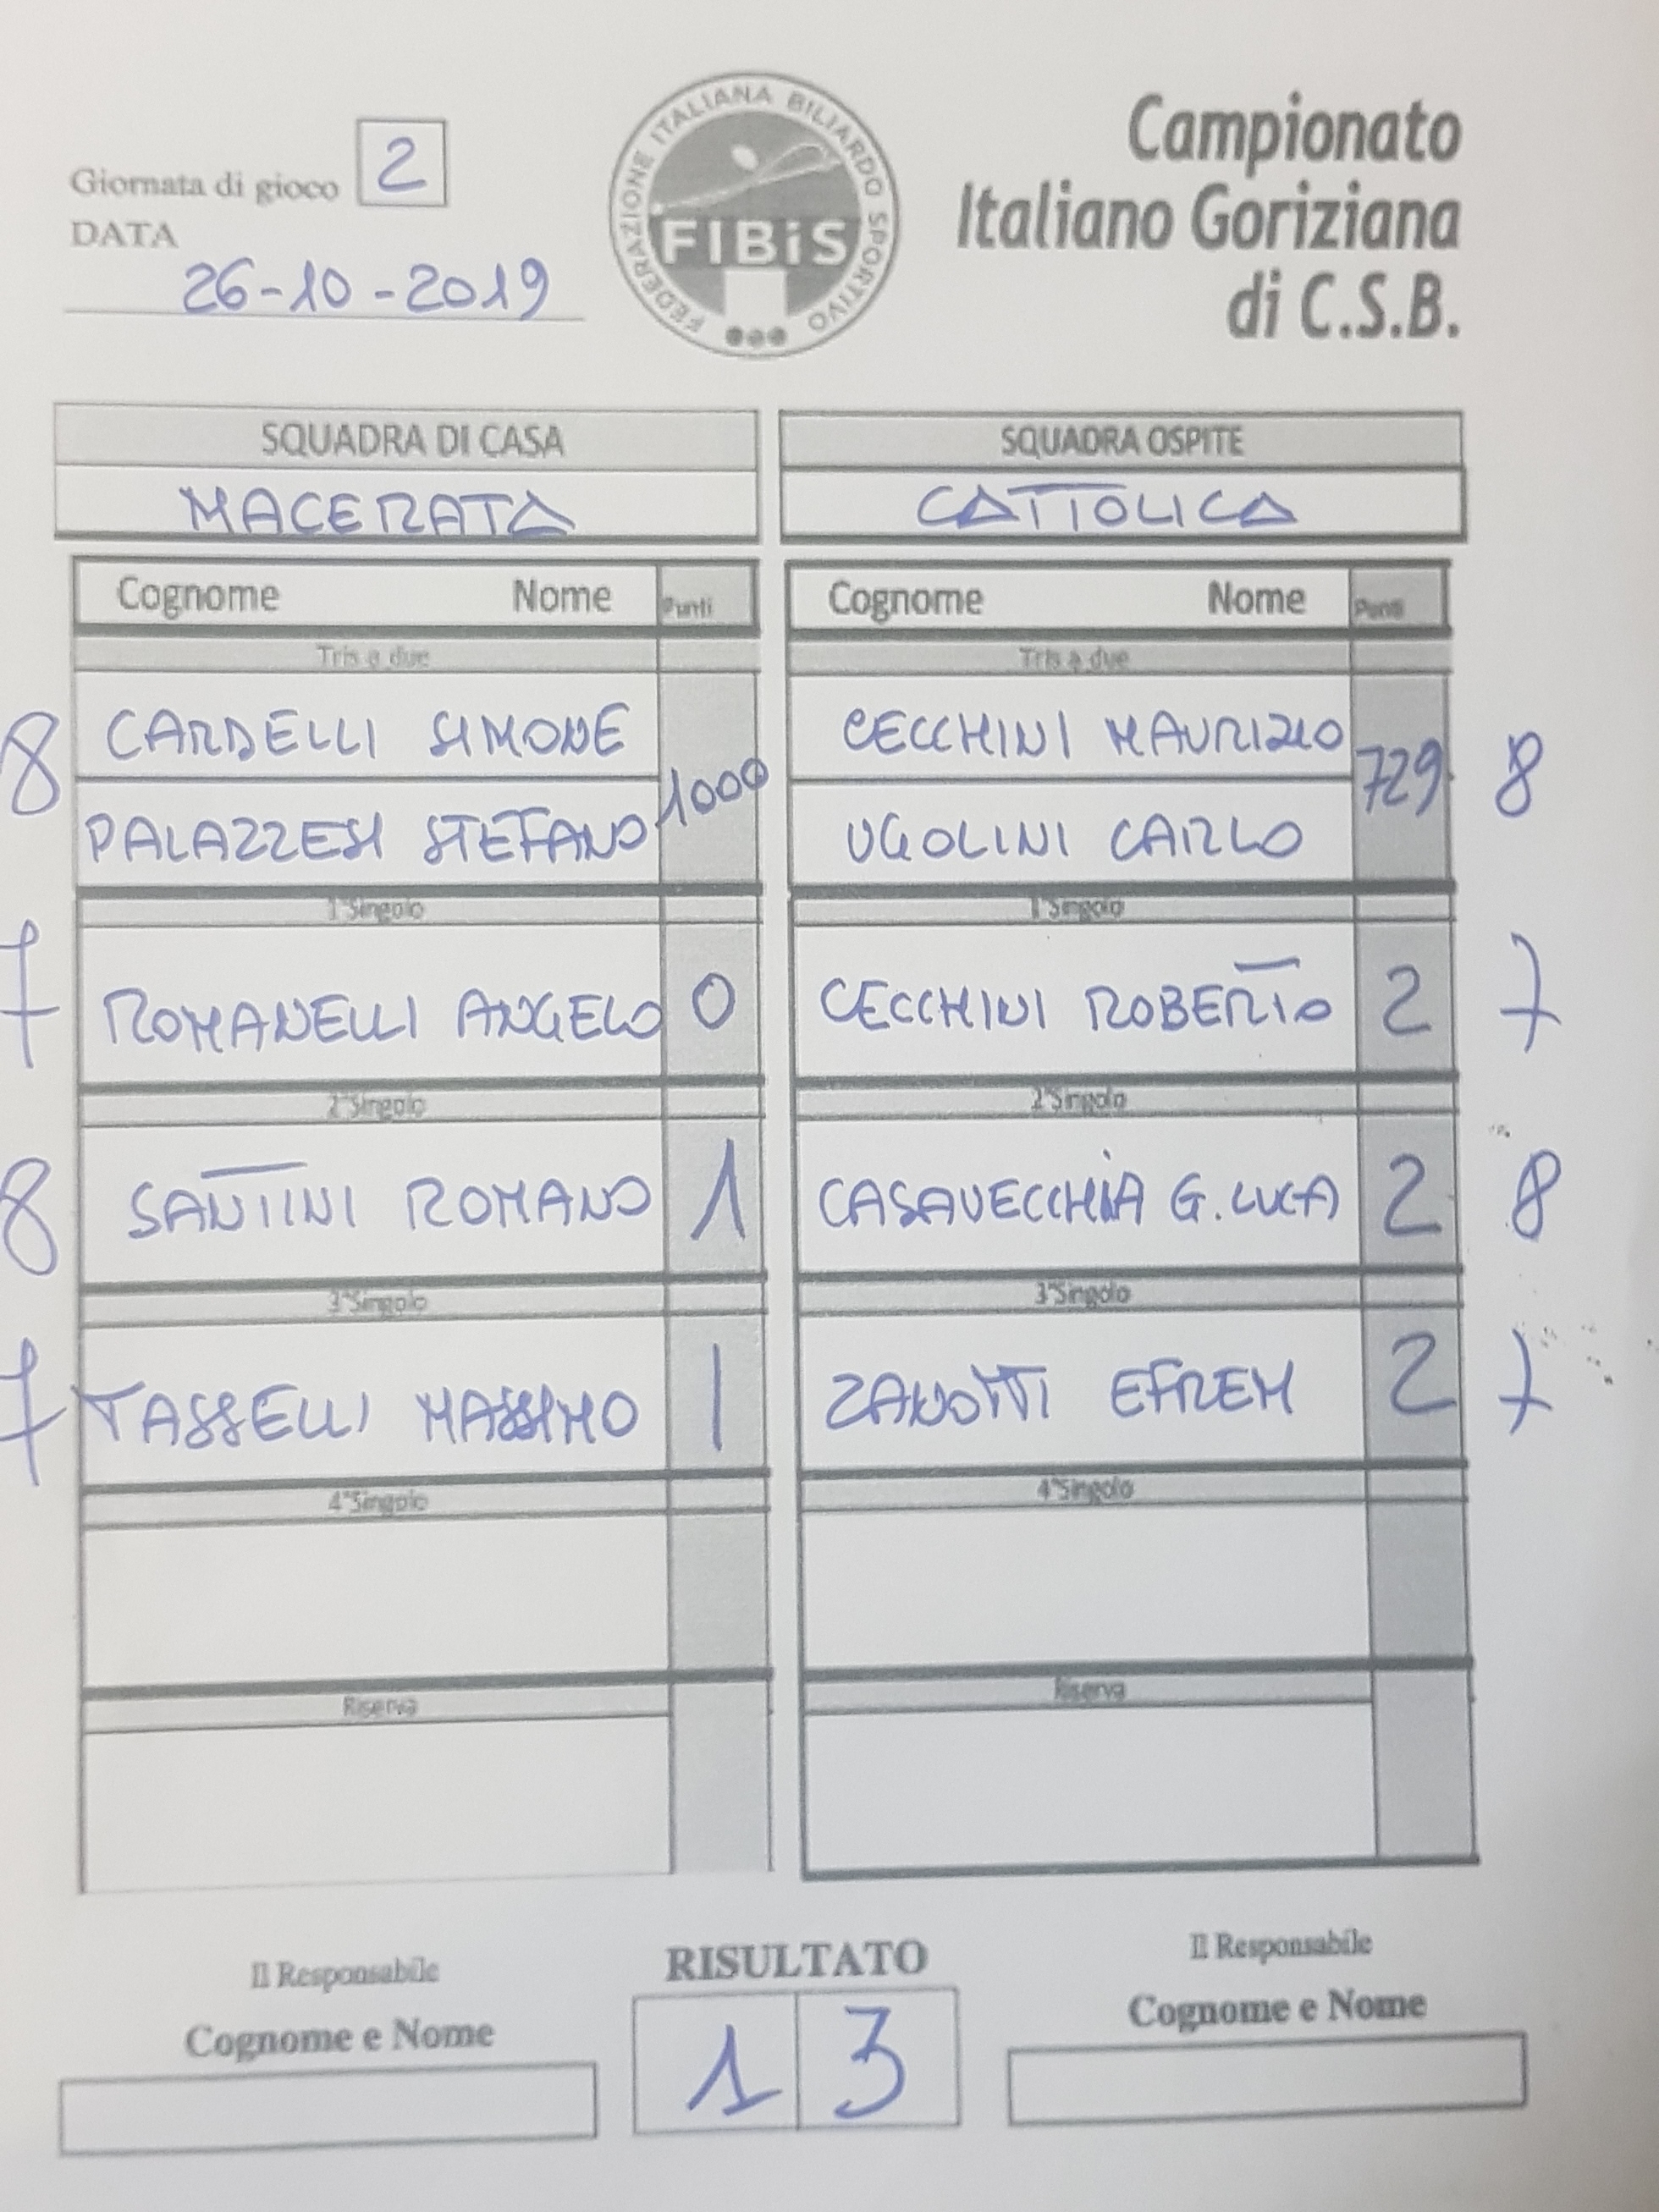 Giornata di gioco 2
DATA
26-10-2019
FEDERAZIONE ITALIANA BILIARDO SPORTIVO
FIBiS
Campionato
Italiano Goriziana
di C.S.B.
SQUADRA DI CASA
MACERATA
SQUADRA OSPITE
CATTOLICA
Cognome Nome Punti
Tris a due
8 CARDELLI SIMONE
PALAZZESI STEFANO 1000
1°Singolo
7 ROMANELLI ANGELO 0
2°Singolo
8 SANTINI ROMANO 1
3°Singolo
7 TASSELLI MASSIMO 1
4°Singolo
Riserva
Cognome Nome Punti
Tris a due
CECCHINI MAURIZIO 729 8
UGOLINI CARLO
1°Singolo
CECCHINI ROBERTO 2 7
2°Singolo
CASAVECCHIA G.LUCA 2 8
3°Singolo
ZANOTTI EFREM 2 7
4°Singolo
Riserva
Il Responsabile
Cognome e Nome
RISULTATO
1 3
Il Responsabile
Cognome e Nome